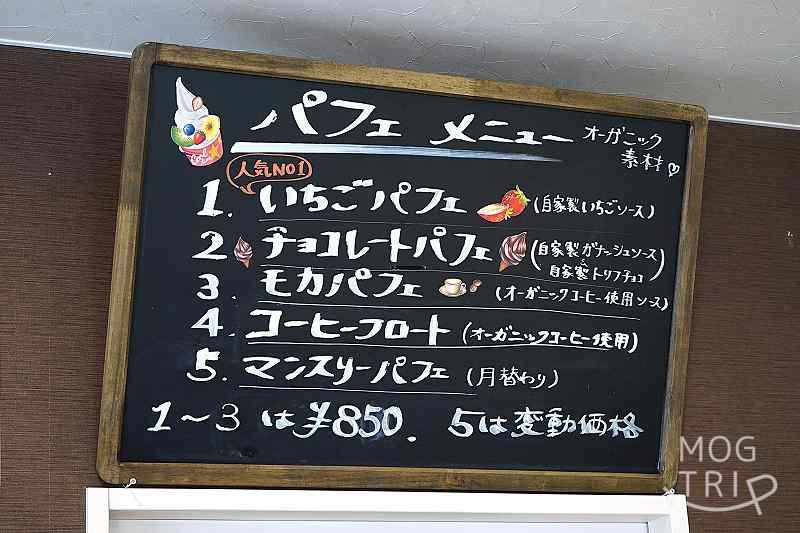 パフェ メニュー オーガニック
素材♡
人気NO1
1. いちごパフェ (自家製いちごソース)
2 チョコレートパフェ (自家製ガナッシュソース
& 自家製トリフチョコ)
3. モカパフェ (オーガニックコーヒー使用ソース)
4. コーヒーフロート (オーガニックコーヒー使用)
5. マンスリーパフェ (月替わり)
1～3 は¥850. 5は変動価格
MOG
TRIP